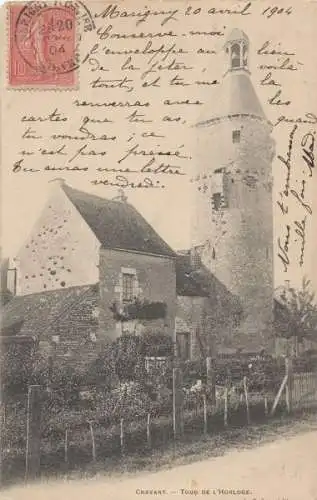 Marigny 20 avril 1904
Conserve-moi
l'enveloppe au lieu
de la jeter, et tu me la
renverras avec les
cartes que tu as, voilà
tu voudras; ça
n'est pas pressé.
Tu auras une lettre
vendredi.
Nous t'embrassons
mille fois
CRAVANT. — TOUR DE L'HORLOGE.